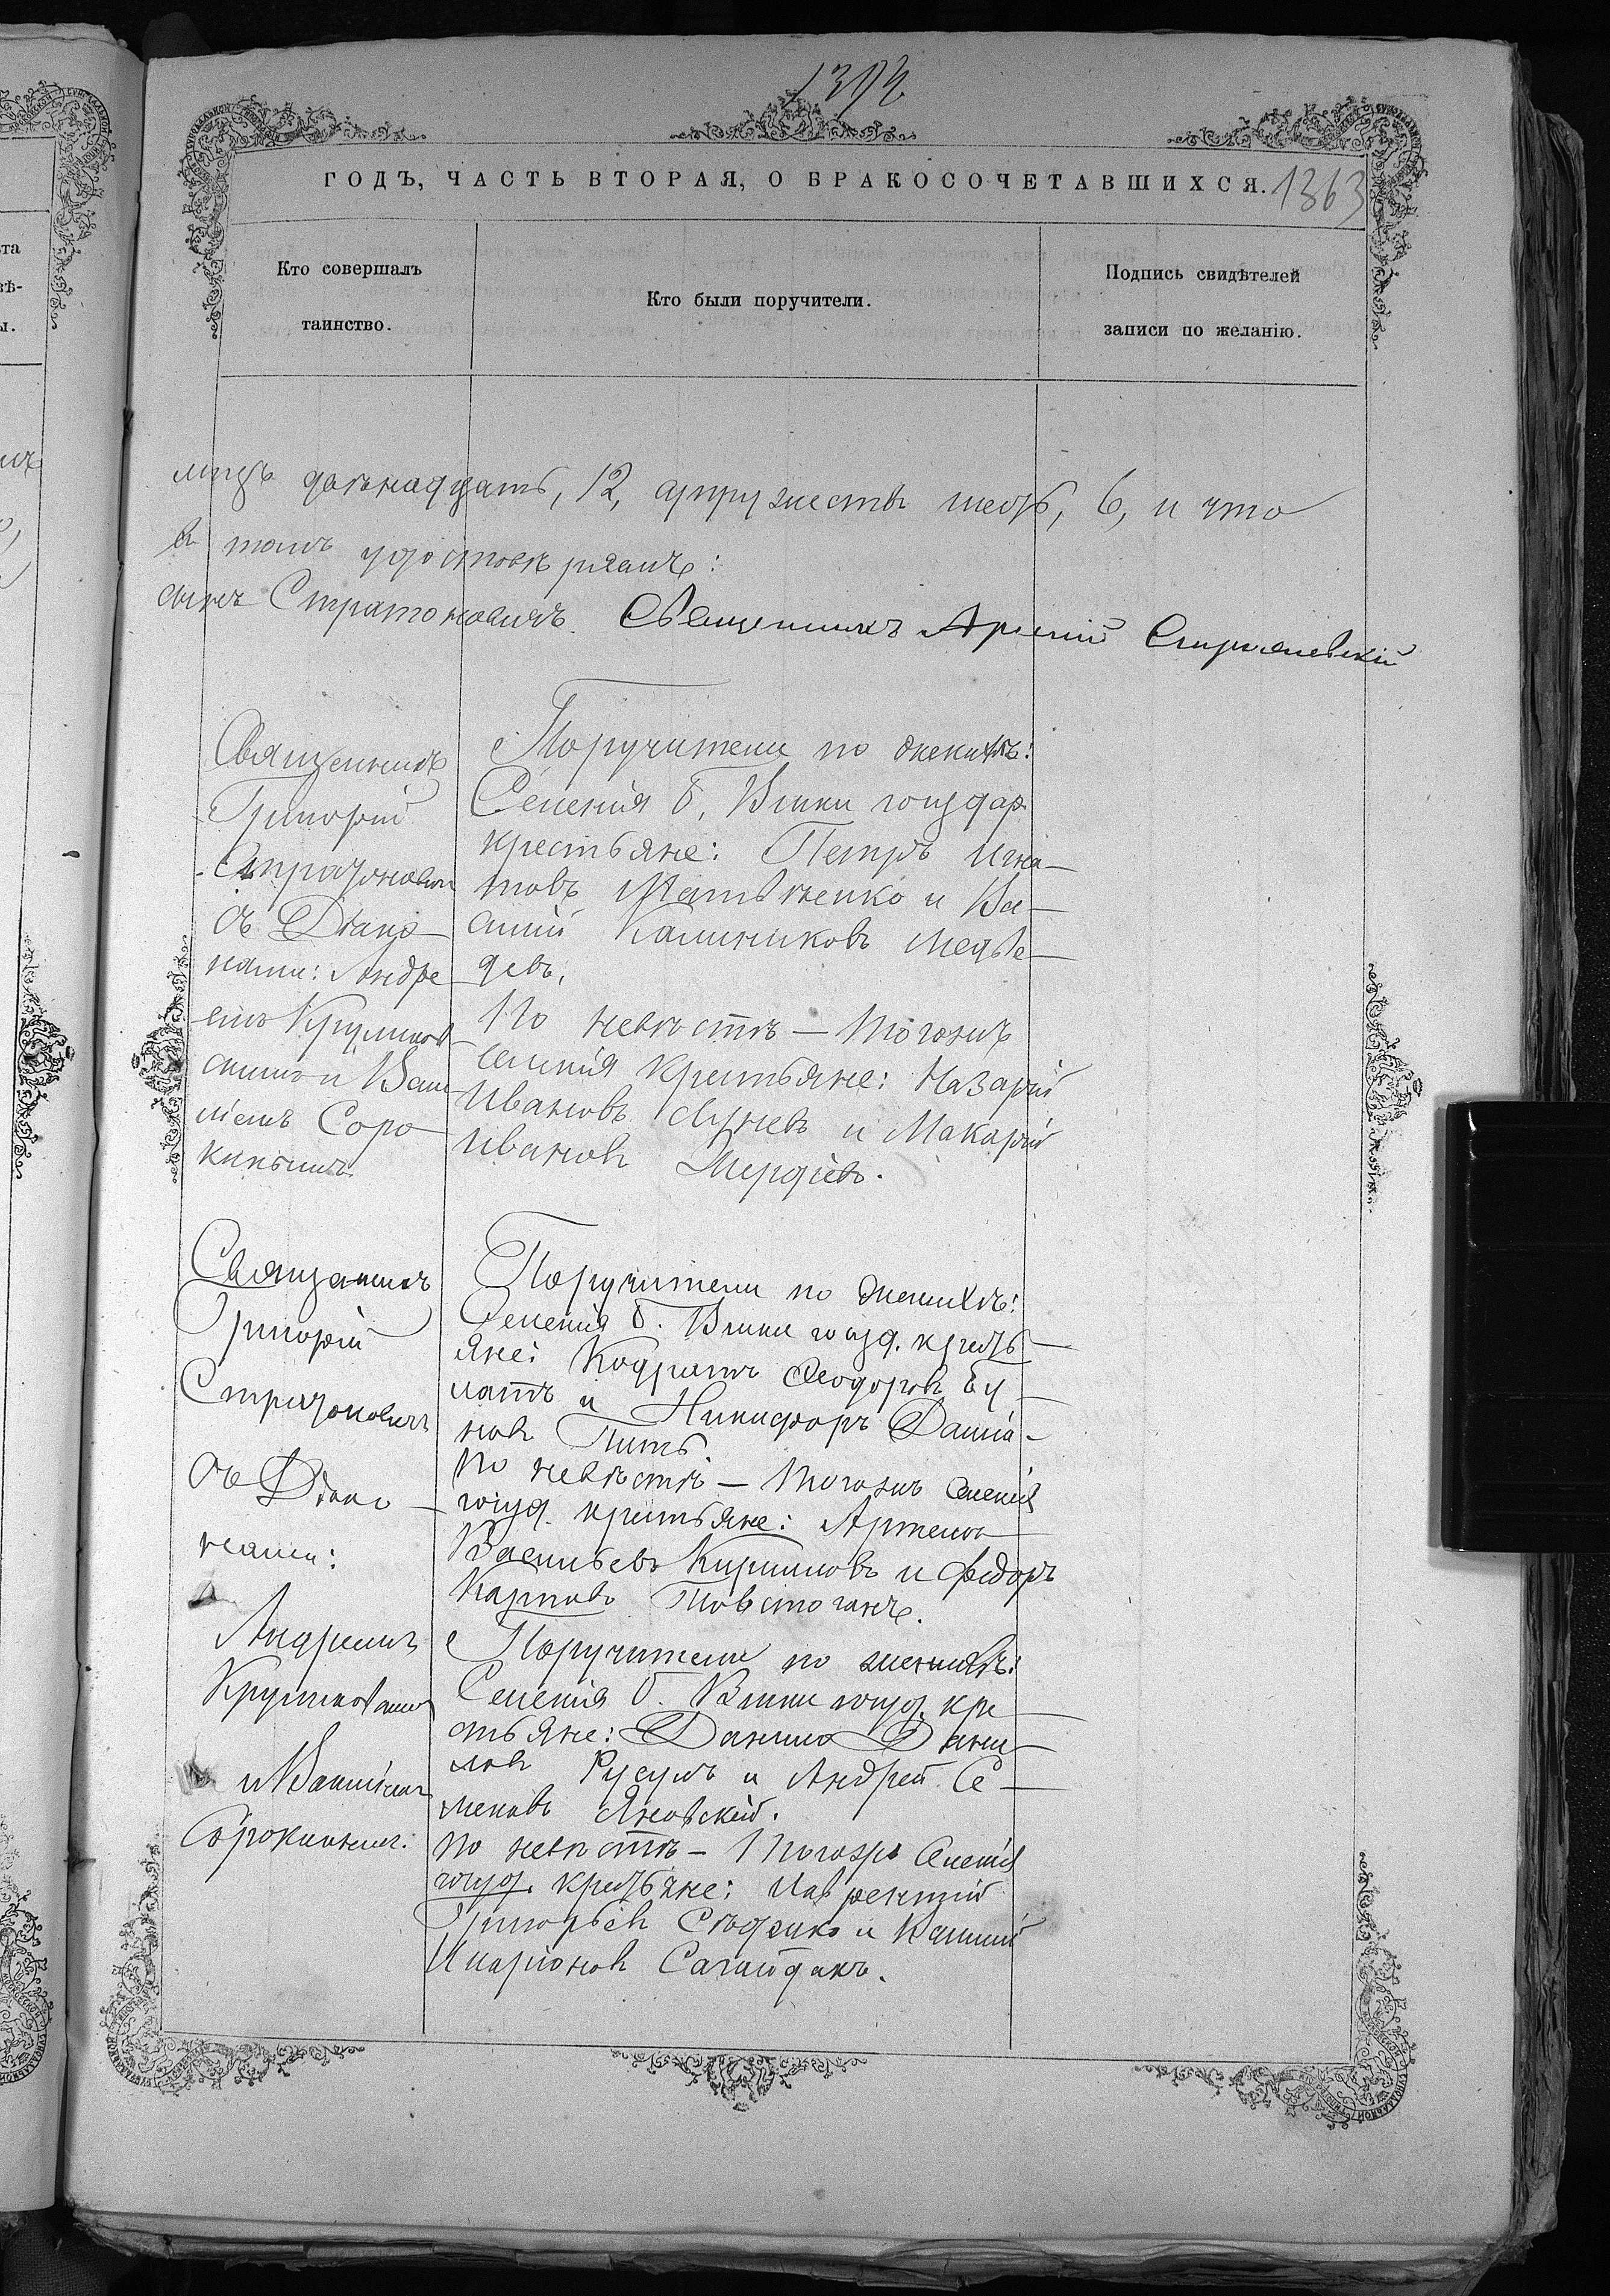 ГОДЪ, ЧАСТЬ ВТОРАЯ, О БРАКОСОЧЕТАВШИХСЯ. 1363
Кто совершалъ
таинство.
Кто были поручители.
Подпись свидѣтелей
записи по желанію.
лицъ двѣнадцать, 12, супружествъ шесть, 6, и что
въ томъ удостовѣряемъ:
Стратоновичъ. Священникъ Арсеній
Священникъ
Григорій
Стратонович
съ Діако-
нами: Андре
емъ Круликов
скимъ и Васи
ліемъ Соро-
кинымъ.
Поручители по женихѣ:
Селенія б. Виски государ.
крестьяне: Петръ Игна-
товъ Матвѣенко и Ва-
силій Калиниковъ Медвѣ-
девъ.
По невѣстѣ — тогожъ
селенія крестьяне: Назарій
Ивановъ Лунёвъ и Макарій
Ивановъ
Священникъ
Григорій
Стратоновичъ
съ Діако-
нами:
Андреемъ
Круликовским
и Василіемъ
Сорокинымъ.
Поручители по женихѣ:
Селенія б. Виски госуд. кресть-
яне: Кодратъ Ѳеодоровъ Бу-
латъ и Никифоръ Даніи-
ловъ
По невѣстѣ — тогожъ селенія
госуд. крестьяне: Артемъ
Васильевъ Кириловъ и Федоръ
Карповъ Товстоганъ.
Поручители по женихѣ:
Селенія б. Виски госуд. кре-
стьяне: Данило Дани-
ловъ Русулъ и Андрей Се-
меновъ Яновскій.
По невѣстѣ — тогожъ селенія
госуд. крестьяне: Лаврентій
Григорьевъ и Василій
Иларіоновъ Сагайдакъ.